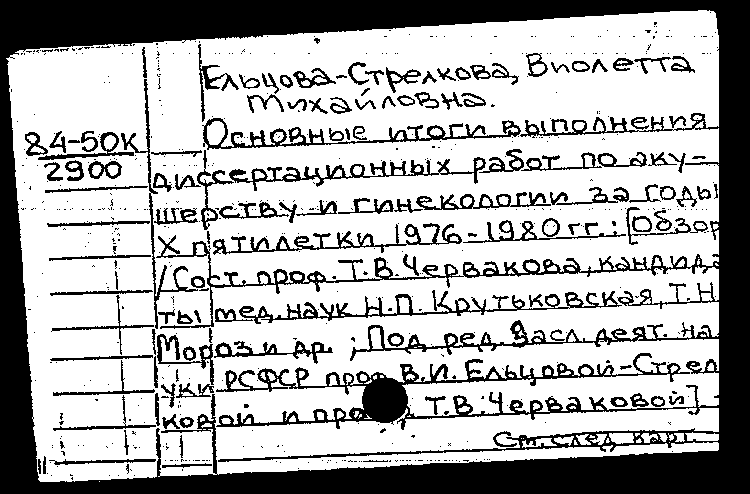 Ельцова-Стрелкова, Виолетта
Михайловна.
84-50К
2900
Основные итоги выполнения
диссертационных работ по аку-
шерству и гинекологии за годы
X пятилетки, 1976-1980 гг.: [Обзор
/Сост. проф. Т.В. Червакова, кандида
ты мед. наук Н.П. Крутьковская, Т.Н
Мороз и др.; Под ред. Засл. деят. на
уки РСФСР проф В.И. Ельцовой-Стрел
ковой и Т.В. Черваковой] -
См. след. карт.